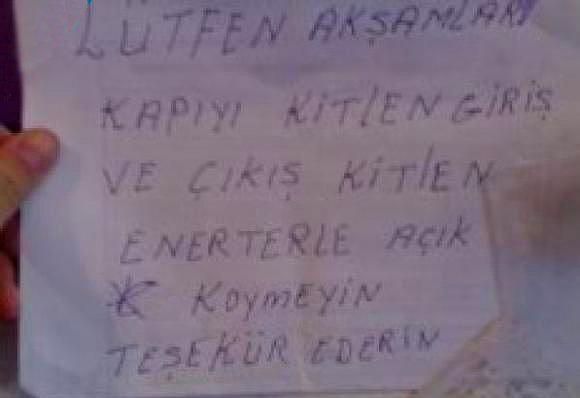 LÜTFEN AKŞAMLARI
KAPIYI KİTLEN GİRİŞ
VE ÇIKIŞ KİTLEN
ENERTERLE AÇIK
KOYMEYİN
TEŞEKÜR EDERİN